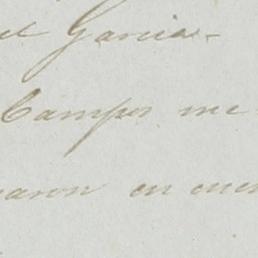 el Garcia-
Campos me
aron en cuen